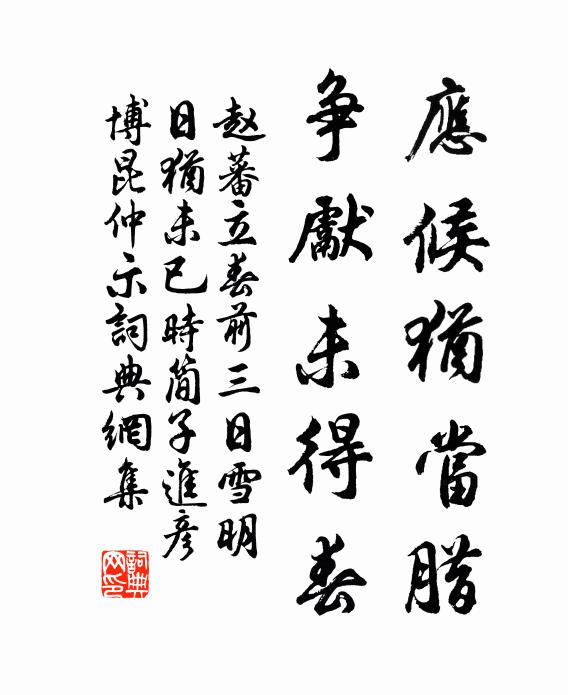 應候猶當腊
争獻未得春
赵蕃立春前三日雪明
日猶未已時簡子進彦
博昆仲示詞典網集
詞典网印